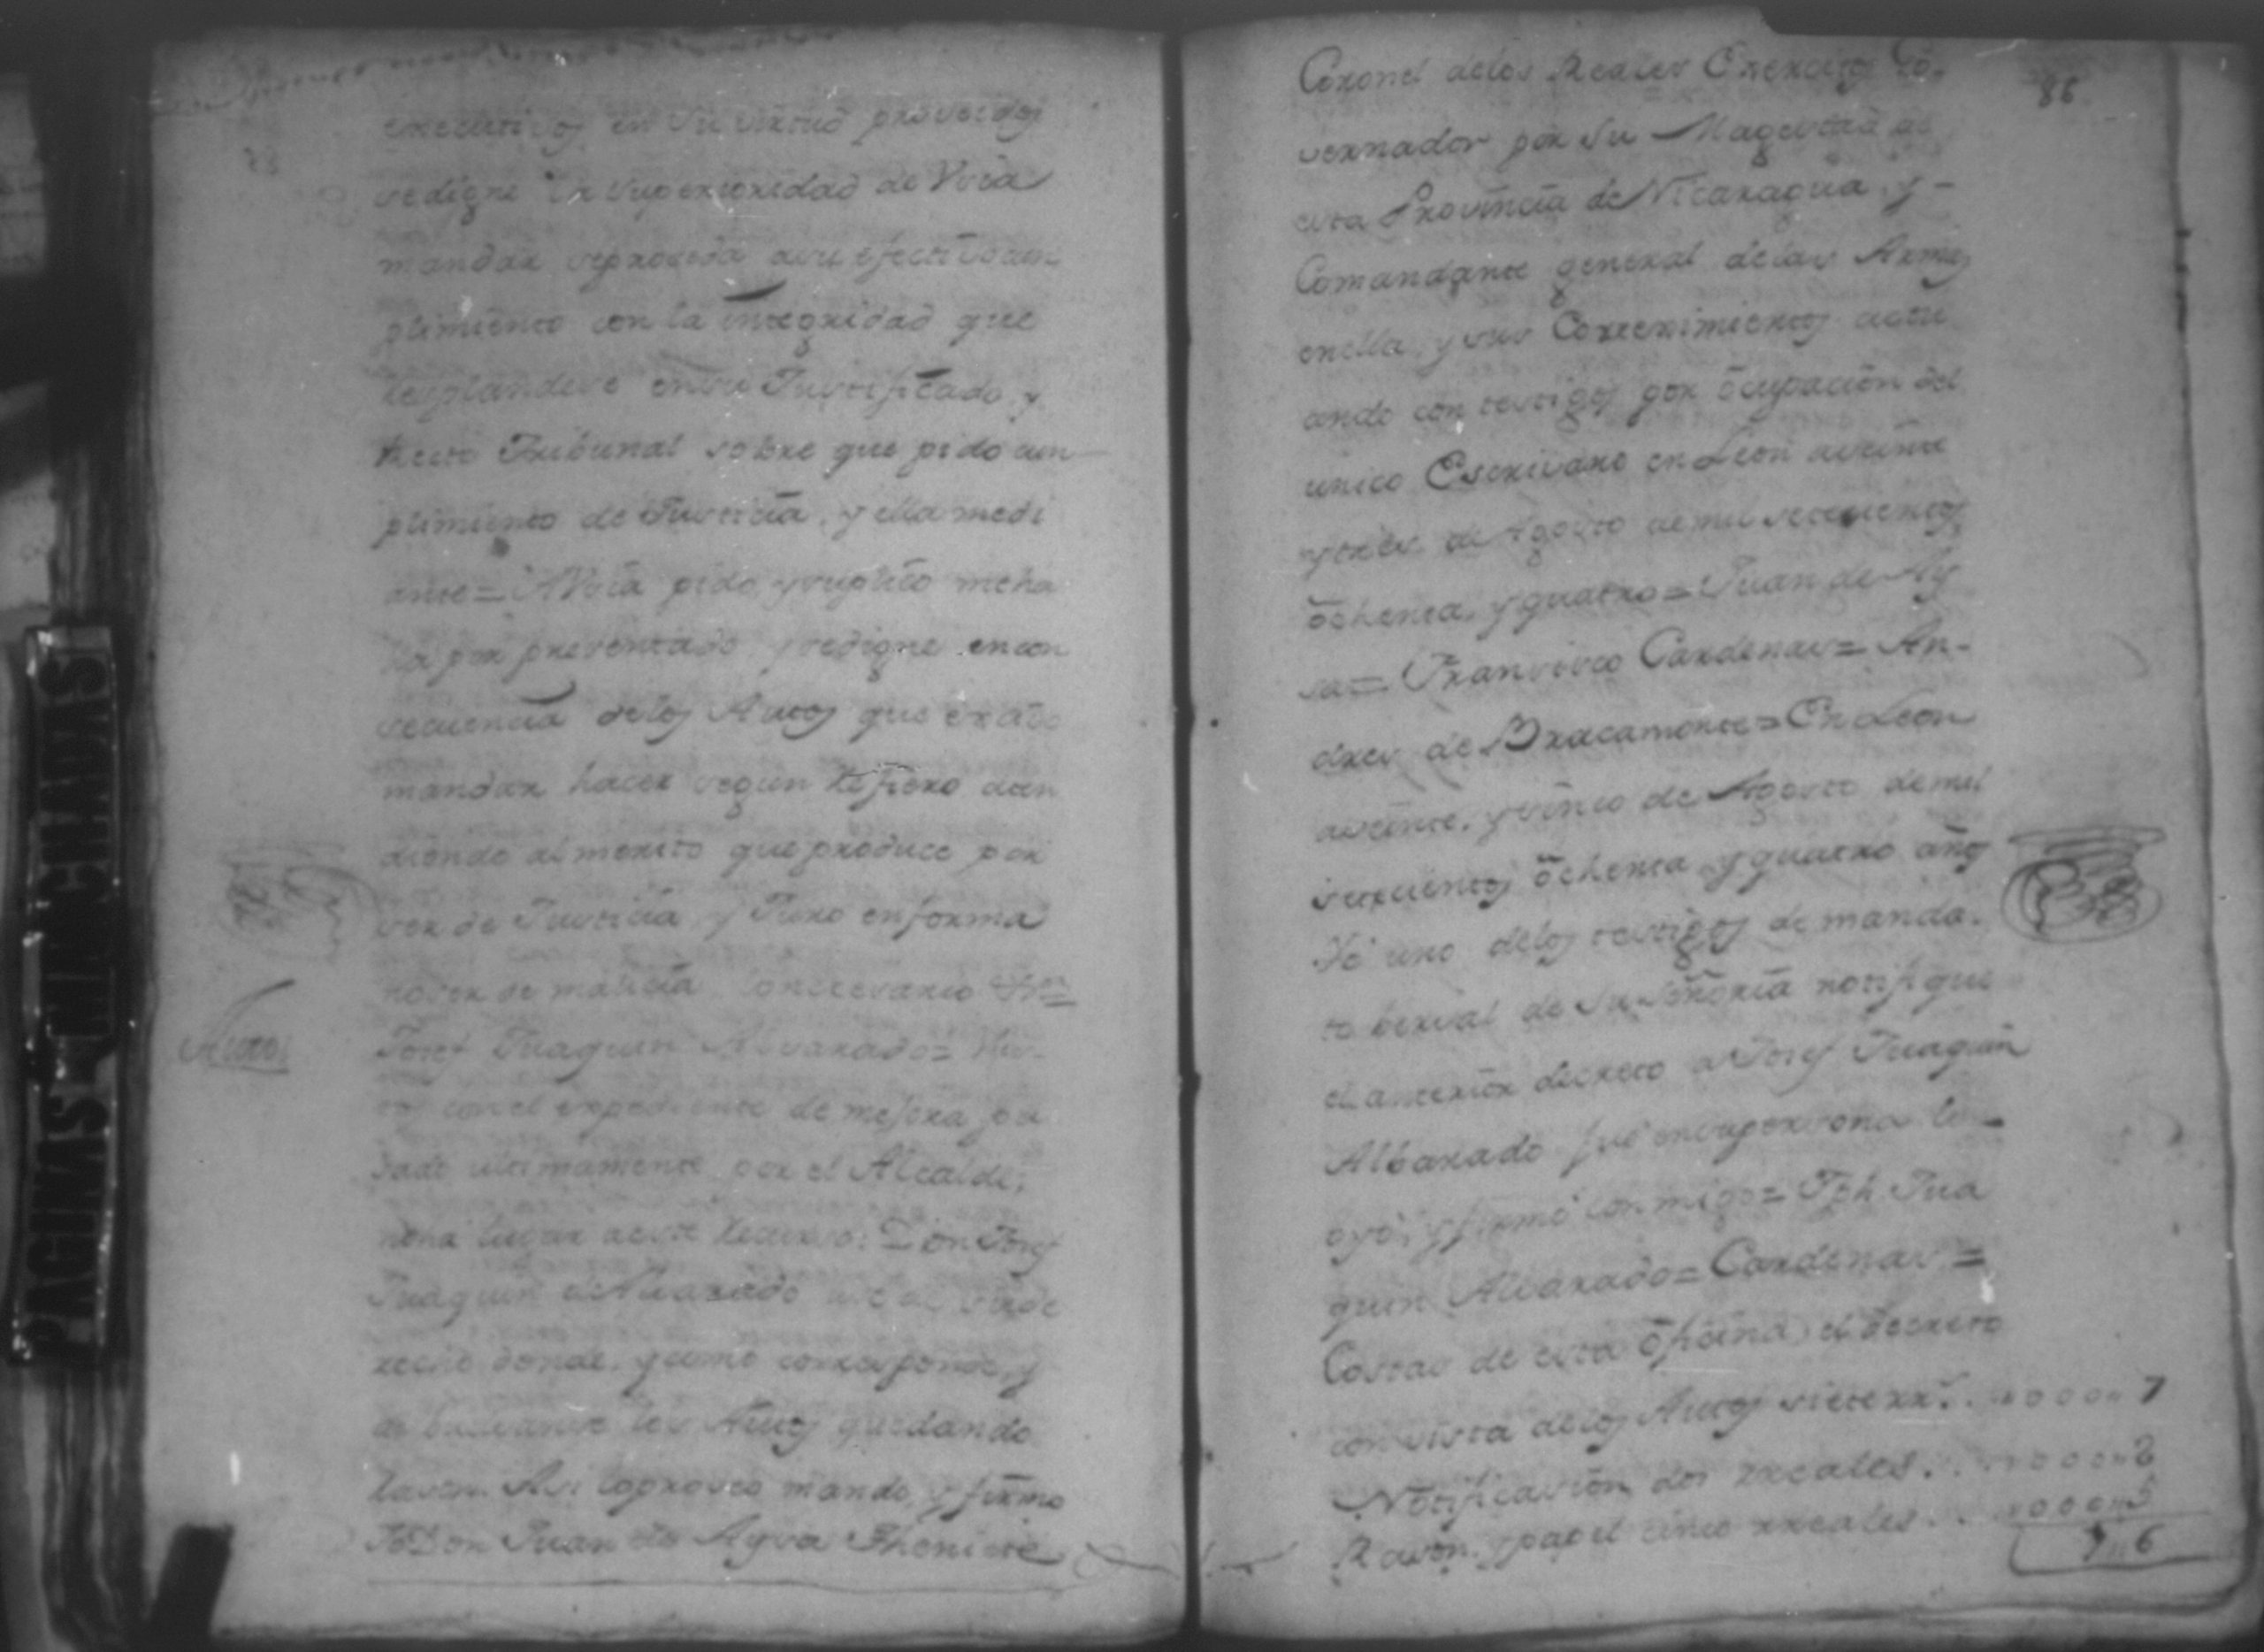 executivos en su virtud proveidos
se digne la superioridad de Vsia
mandar se proceda a su efectivo cum
plimiento con la integridad que
resplandece en su Justificado, y
recto Tribunal sobre que pido cum
plimiento de Justicia, y ella medi
ante= A Vsia pido, y suplico me ha
ya por presentado, y se digne en con
secuencia de los Autos que
mandar hacer segun refiero aten
diendo al merito que produce por
ser de Justicia, y Juro en forma
no ser de malicia lo necesario
Josef Juaquin Alvarado= Vis-
tos con el expediente de mejora
dado ultimamente por el Alcalde;
no ha lugar a este recurso: Don Josef
Juaquin de Alvarado use de su de
recho donde, y como corresponde, y
debuelvanse los Autos quedando
rason. Asi lo proveo mando, y firmo
Yo Don Juan de Aysa Theniente
Auto
86
Coronel de los Reales Exercitos Go-
vernador por Su Magestad de
esta Provincia de Nicaragua, y -
Comandante general de las Armas
en ella, y sus Correximientos actu
ando con testigos por ocupacion del
unico Escrivano en Leon a veinte
y tres de Agosto de mil setecientos
ochenta, y quatro= Juan de Ay
sa= Francisco Cardenas= An-
dres de Bracamonte= En Leon
a veinte, y cinco de Agosto de mil
setecientos ochenta y quatro años
Yo uno de los testigos de manda-
to berval de Su Señoria notifique
el anterior decreto a Josef Juaquin
Albarado fue en su persona lo -
oyó, y firmó conmigo= Jph Jua
quin Alvarado= Cardenas=
Costas de esta oficina, el decreto
con vista de los Autos siete rr.s . . 000" 7
Notificasion dos rreales. . . 000" 2
Rason, y papel cinco rreales . . 000" 5
1" 6
PAGINAS MANCHADAS